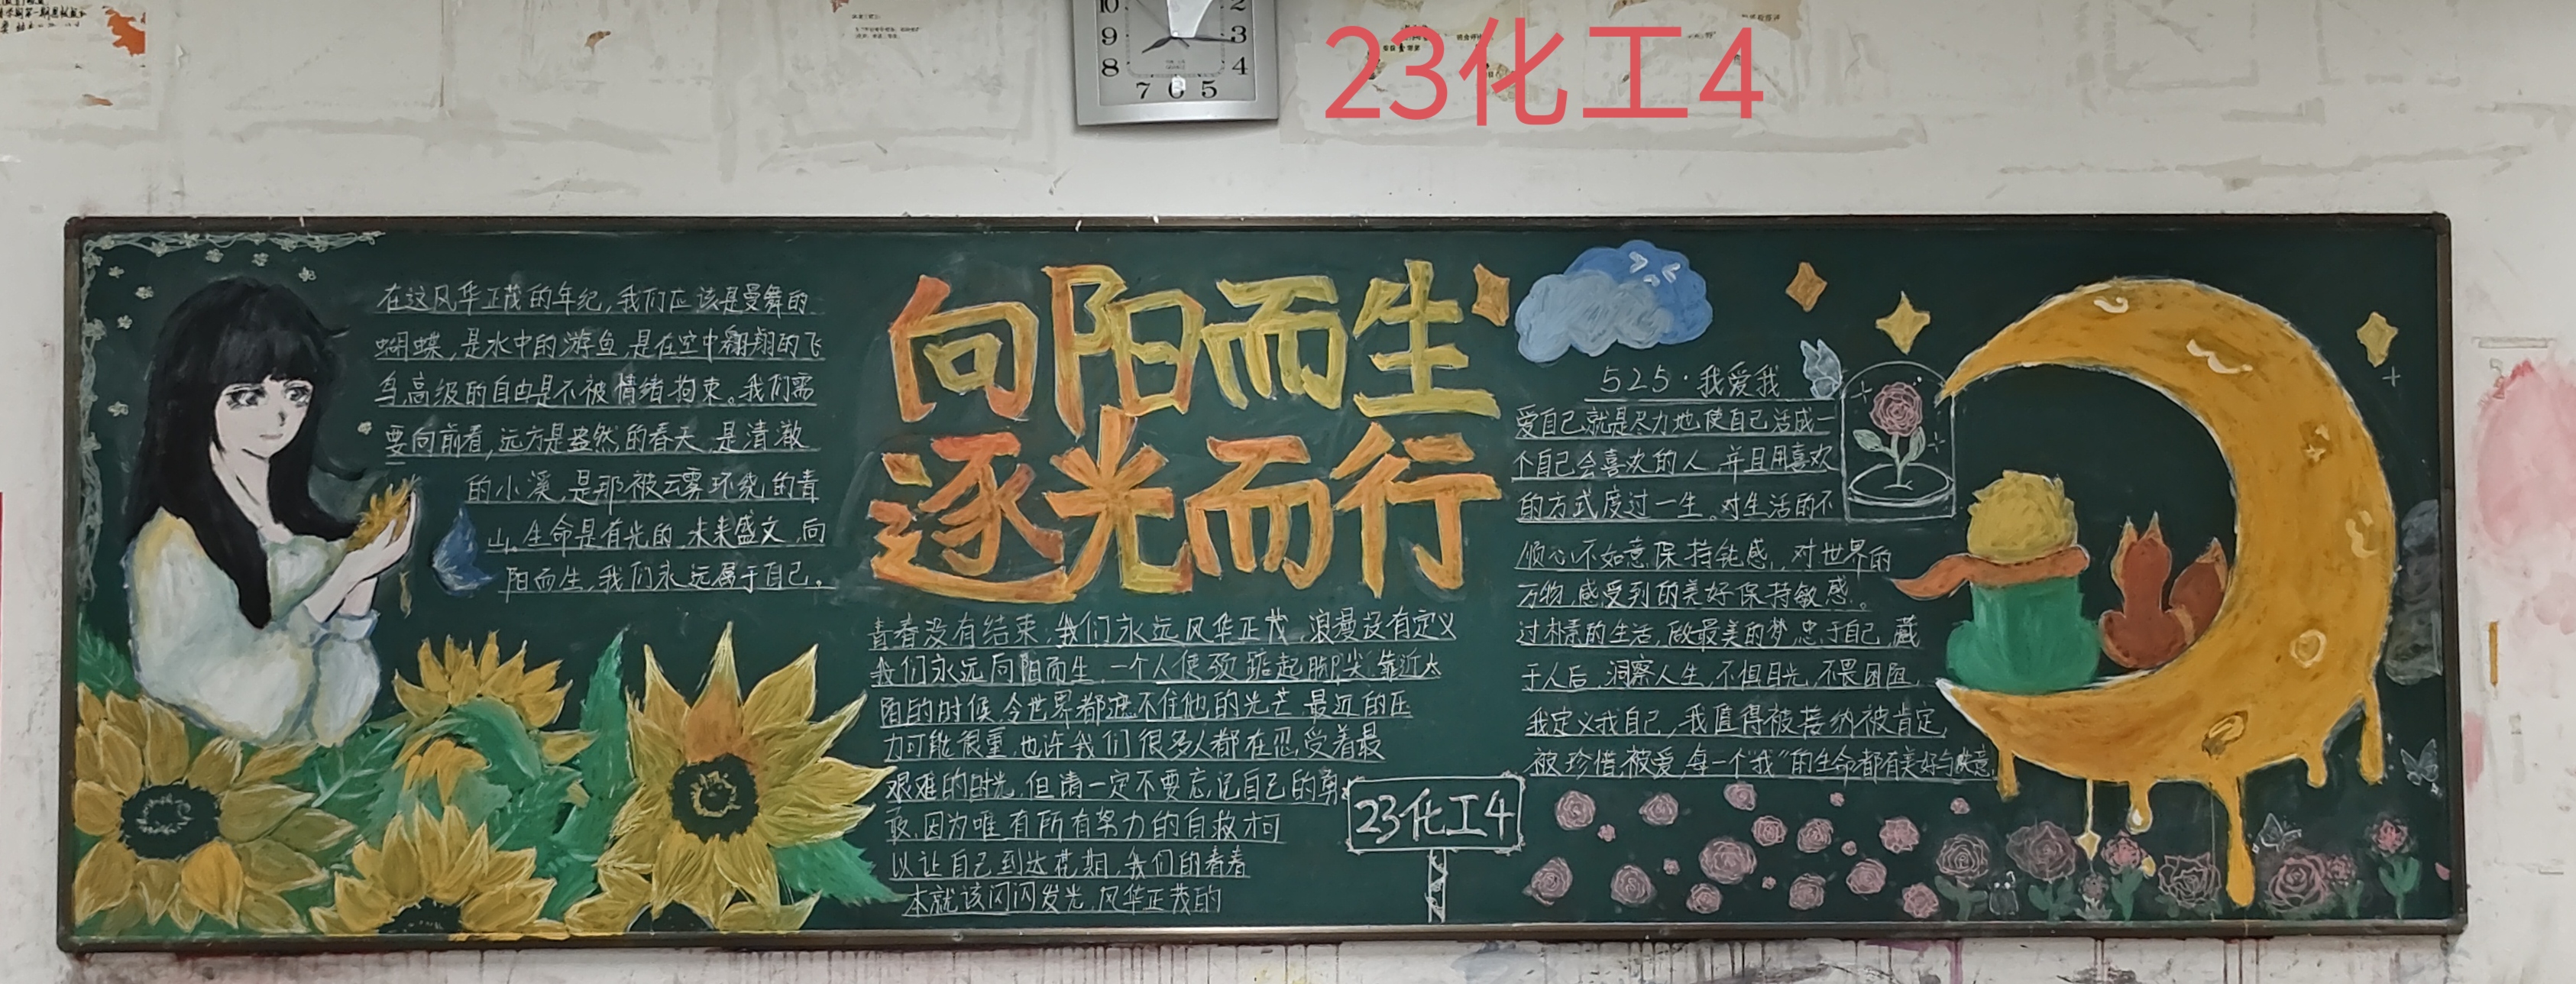 23化工4
10
2
9
3
8
4
7 6 5
在这风华正茂的年纪,我们应该是曼舞的
蝴蝶,是水中的游鱼,是在空中翱翔的飞
鸟,高级的自由是不被情绪拘束。我们需
要向前看,远方是盎然的春天,是清澈
的小溪,是那被云雾环绕的青
山。生命是有光的,未来盛文,向
阳而生,我们永远属于自己。
向阳而生
逐光而行
青春没有结束,我们永远风华正茂,浪漫没有定义
我们永远向阳而生,一个人使劲踮起脚尖靠近太
阳的时候,令世界都遮不住他的光芒,最近的压
力可能很重,也许我们很多人都在忍受着最
艰难的时光,但请一定不要忘记自己的勇
敢,因为唯有所有努力的自救才可
以让自己到达花期,我们的青春
本就该闪闪发光,风华正茂的
23化工4
525·我爱我
爱自己,就是尽力地使自己活成一
个自己会喜欢的人,并且用喜欢
的方式度过一生。对生活的不
顺心不如意保持钝感,对世界的
万物,感受到的美好保持敏感。
过朴素的生活,做最美的梦,忠于自己,藏
于人后,洞察人生,不惧目光,不畏困阻
我定义我自己,我值得被接纳被肯定,
被珍惜,被爱,每一个“我”的生命都有美好与快意